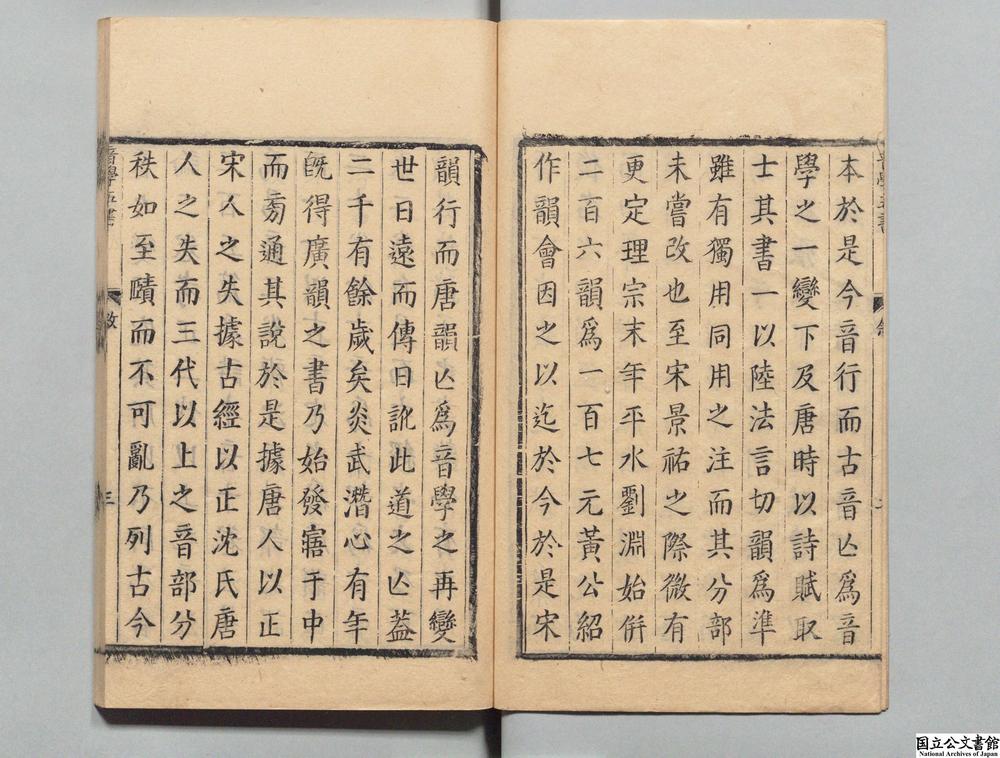 本於是今音行而古音亾爲音
學之一變下及唐時以詩賦取
士其書一以陸法言切韻爲準
雖有獨用同用之注而其分部
未嘗改也至宋景祐之際微有
更定理宗末年平水劉淵始併
二百六韻爲一百七元黃公紹
作韻會因之以迄於今於是宋
韻行而唐韻亾爲音學之再變
世日遠而傳日訛此道之亾葢
二千有餘歲矣炎武潛心有年
旣得廣韻之書乃始發寤于中
而旁通其說於是據唐人以正
宋人之失據古經以正沈氏唐
人之失而三代以上之音部分
秩如至賾而不可亂乃列古今
音學五書
敘
三
国立公文書館
National Archives of Japan